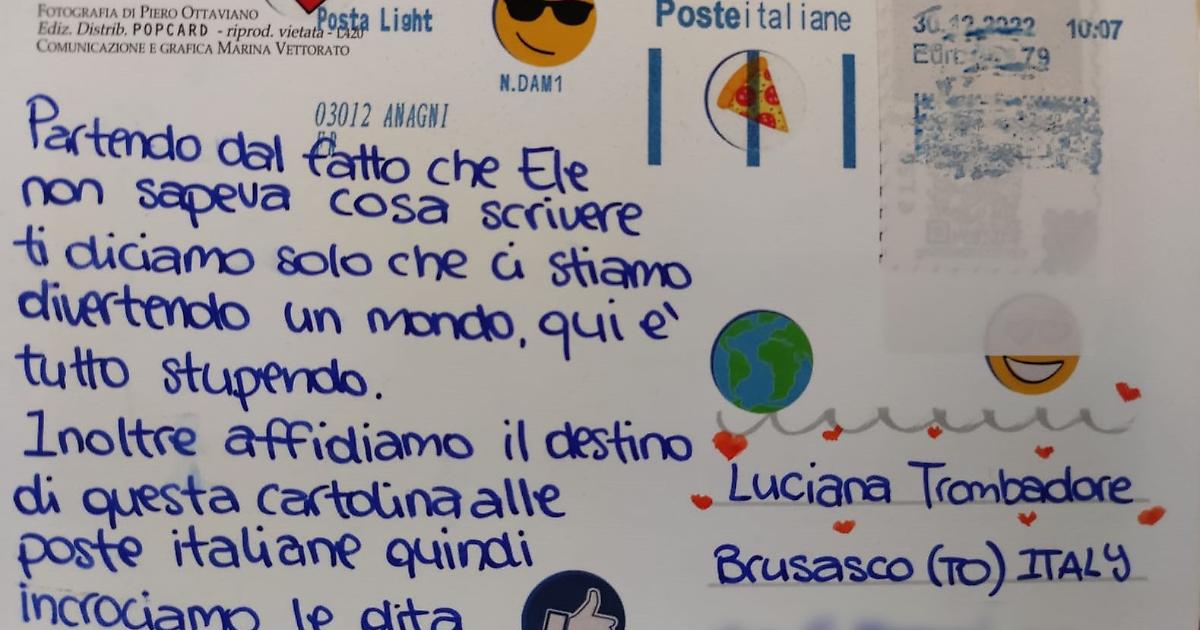 FOTOGRAFIA DI PIERO OTTAVIANO
Ediz. Distrib. POPCARD - riprod. vietata -
COMUNICAZIONE E GRAFICA MARINA VETTORATO
Posta Light
N.DAM1
Posteitaliane
30.12.2022 10:07
03012 ANAGNI
Partendo dal fatto che Ele
non sapeva cosa scrivere
ti diciamo solo che ci stiamo
divertendo un mondo, qui e'
tutto stupendo.
Inoltre affidiamo il destino
di questa cartolina alle
poste italiane quindi
incrociamo le dita
Luciana Trombadore
Brusasco (TO) ITALY